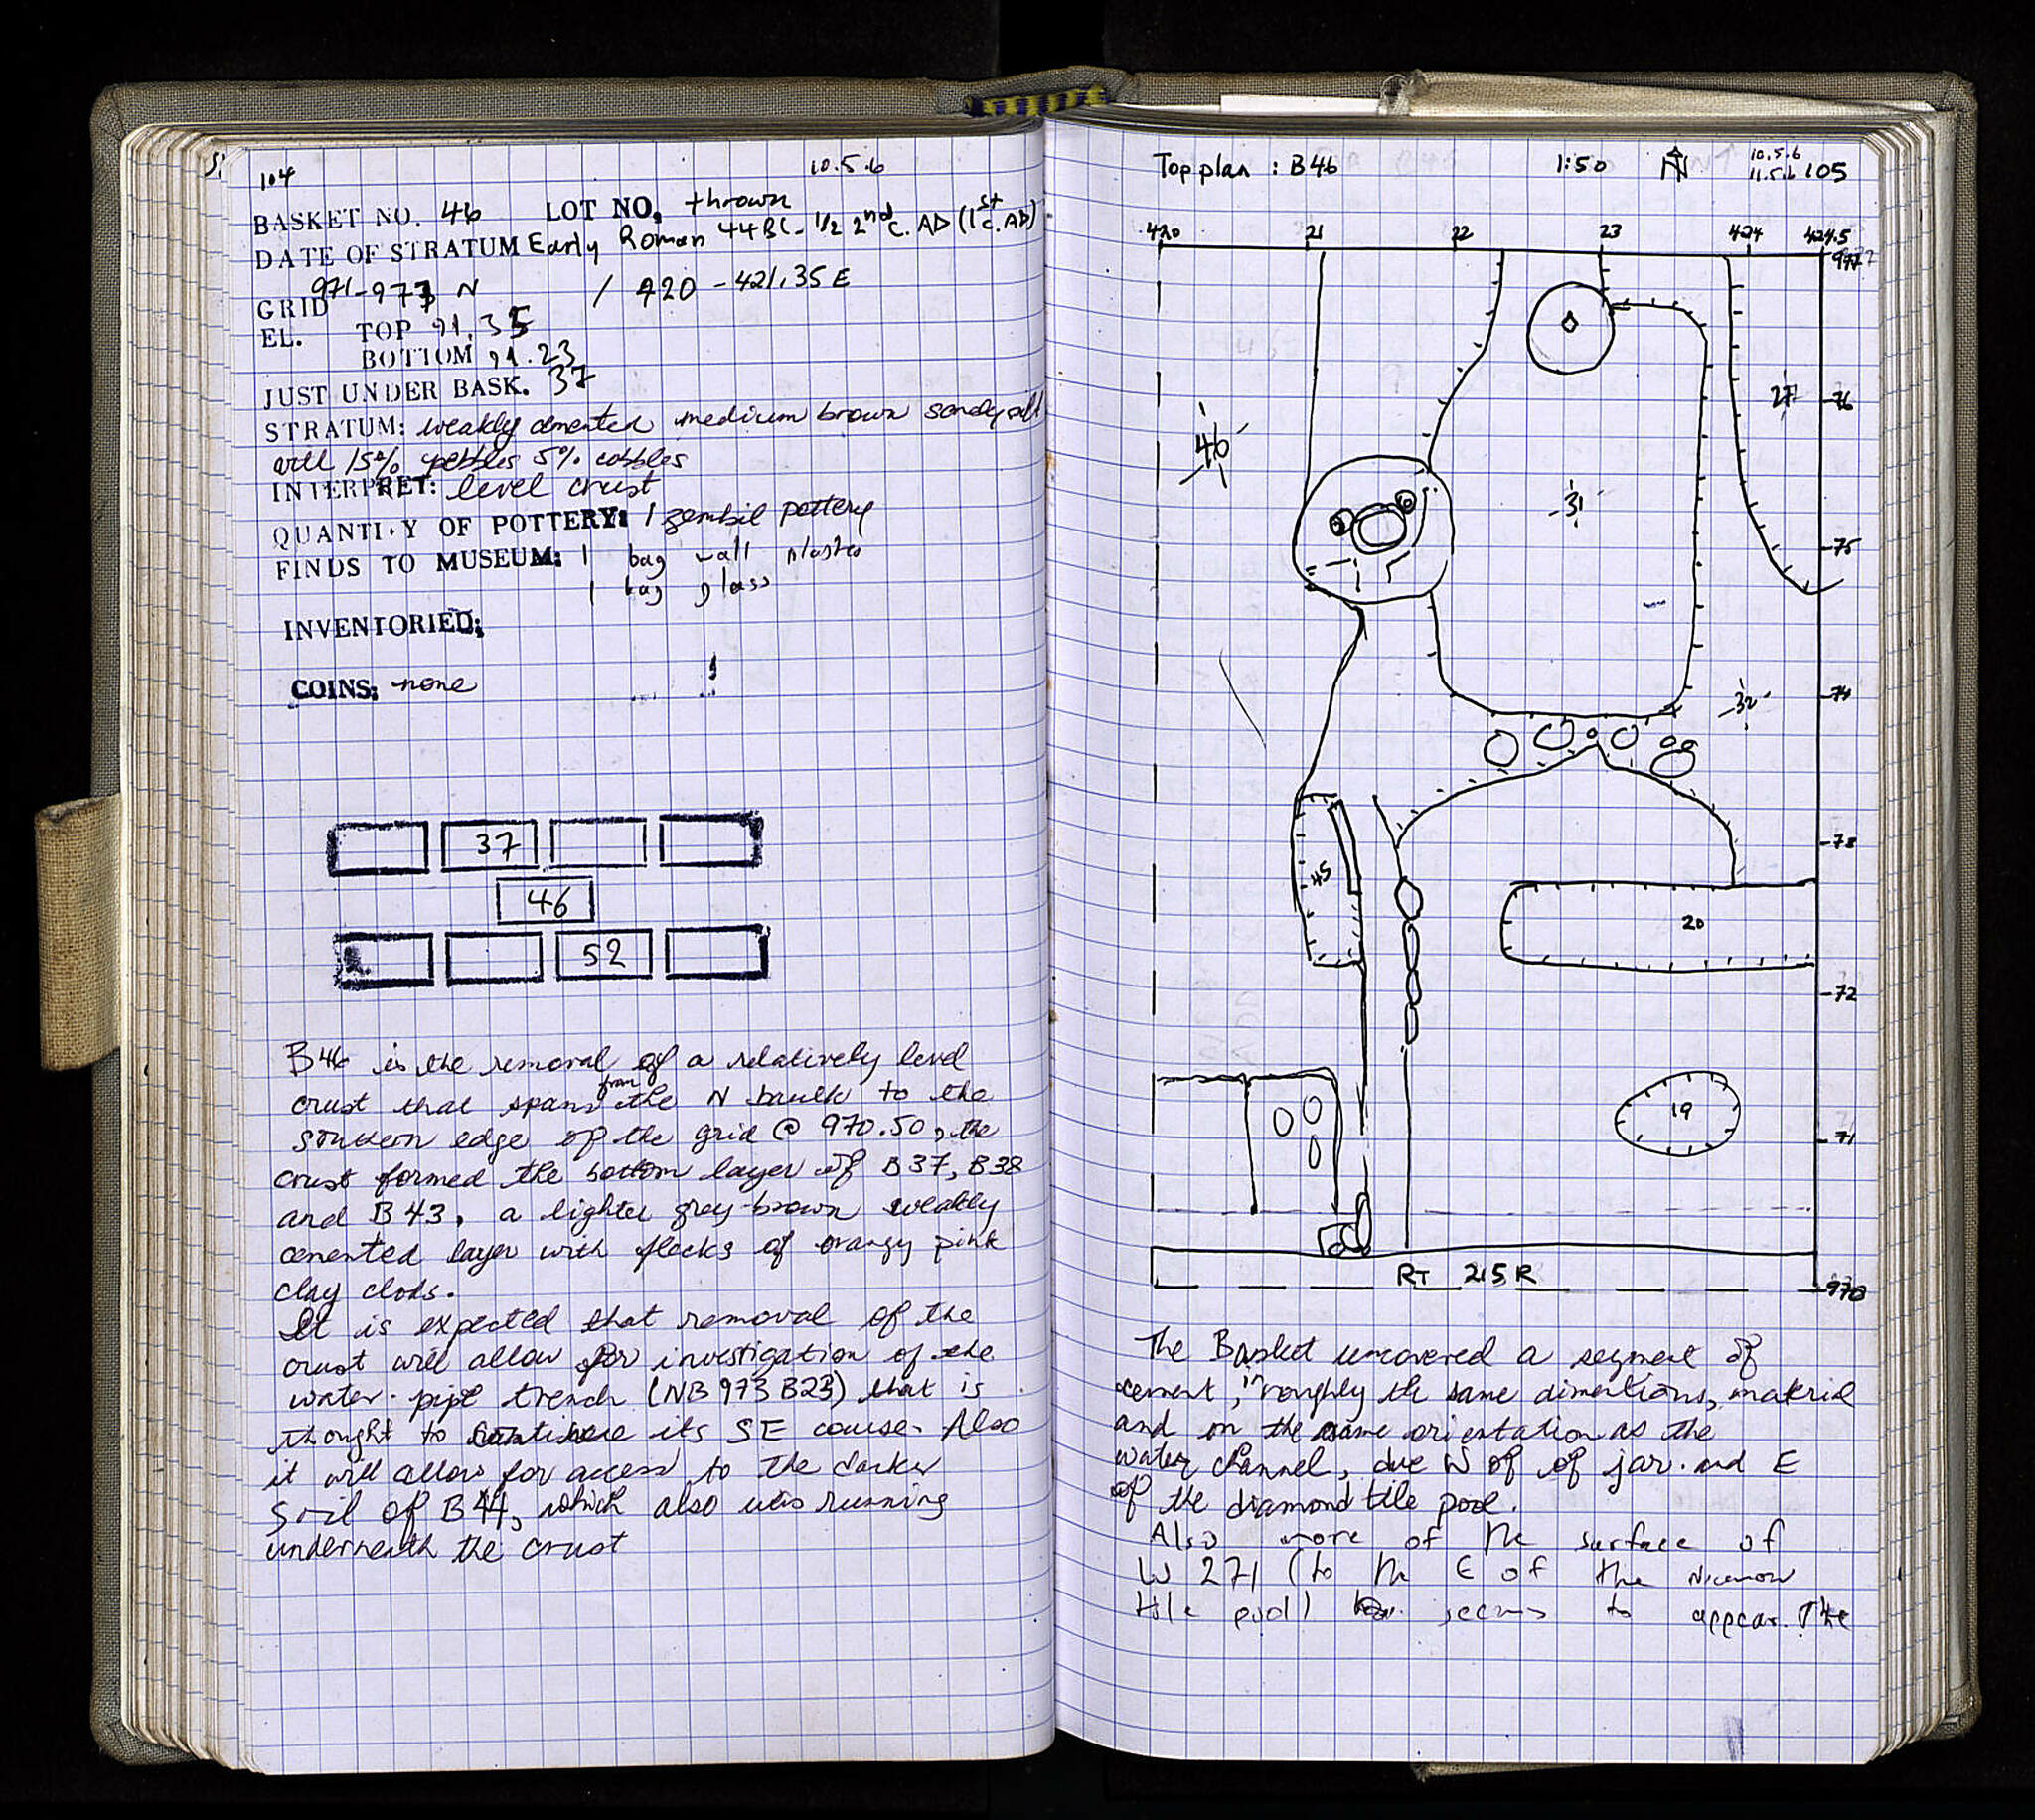 104
10.5.6
BASKET NO. 46 LOT NO, thrown
DATE OF STRATUM Early Roman 44BC - 1/2 2nd c. AD (1st c. AD)
GRID 971-977 N / 420 - 421.35 E
EL. TOP 91.35
BOTTOM 91.23
JUST UNDER BASK. 37
STRATUM: weakly cemented medium brown sandy silt
with 15% pebbles 5% cobbles
INTERPRET: level crust
QUANTITY OF POTTERY: 1 zembil pottery
FINDS TO MUSEUM: 1 bag wall plaster
1 bag glass
INVENTORIED:
COINS: none
37
46
52
B46 is the removal of a relatively level
crust that spans from the N baulk to the
southern edge of the grid @ 970.50, the
crust formed the bottom layer of B37, B38
and B43, a lighter grey-brown weakly
cemented layer with flecks of orangy pink
clay clots.
It is expected that removal of the
crust will allow for investigation of the
water-pipe trench (NB 973 B23) that is
thought to continue its SE course. Also
it will allow for access to the darker
soil of B44, which also was running
underneath the crust
Top plan : B46 1:50 N 10.5.6
11.5.6 105
420 21 22 23 424 424.5
977
27 76
46
31
75
32 74
73
45
20
72
19
71
RT 215R
970
The Basket uncovered a segment of
cement, in roughly the same dimentions, material
and on the same orientation as the
water channel, due W of of jar. and E
of the diamond tile pool.
Also more of the surface of
W 271 (to the E of the
tile pool) seems to appear. The